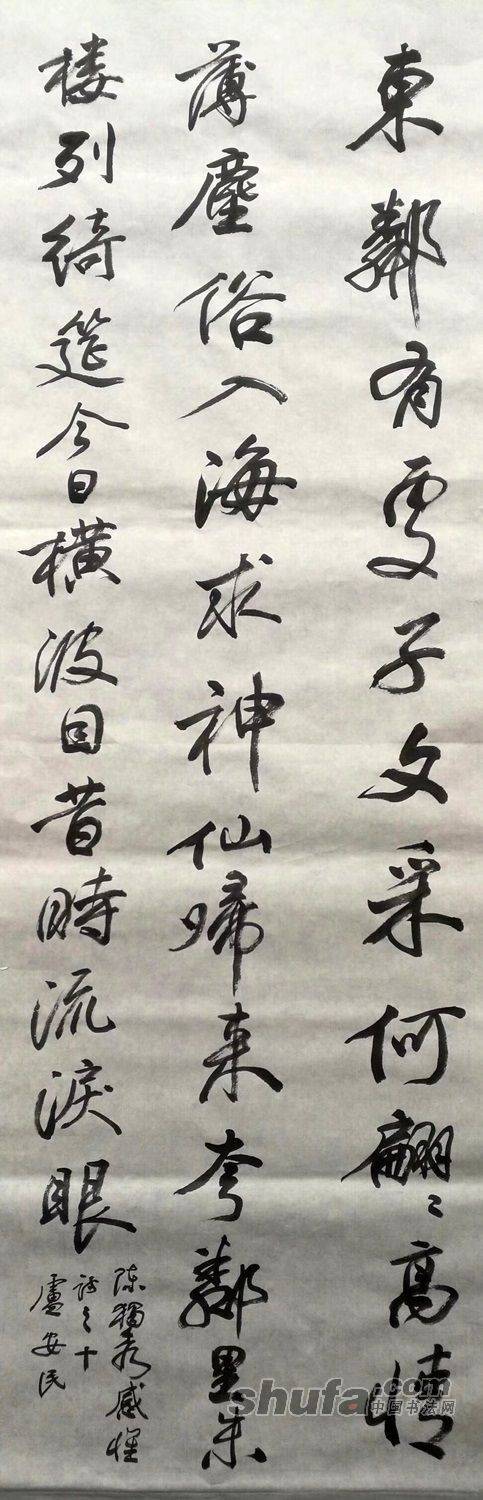 東鄰有處子文采何翩〻高情
薄塵俗入海求神仙歸来夸鄰里朱
楼列绮筵今日橫波目昔時流淚眼
陈獨秀感懷
詩之十
盧安民
shufa.com
中国书法网